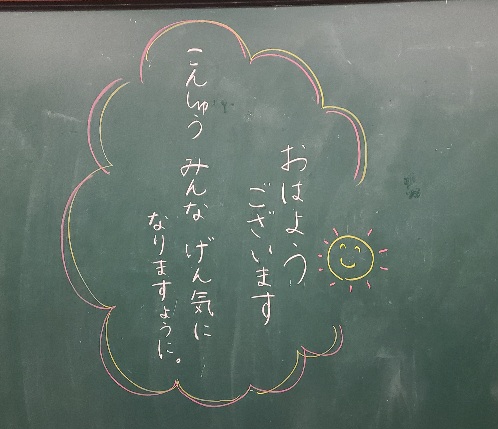 おはよう
ございます
こんしゅう みんな げん気に
なりますように。